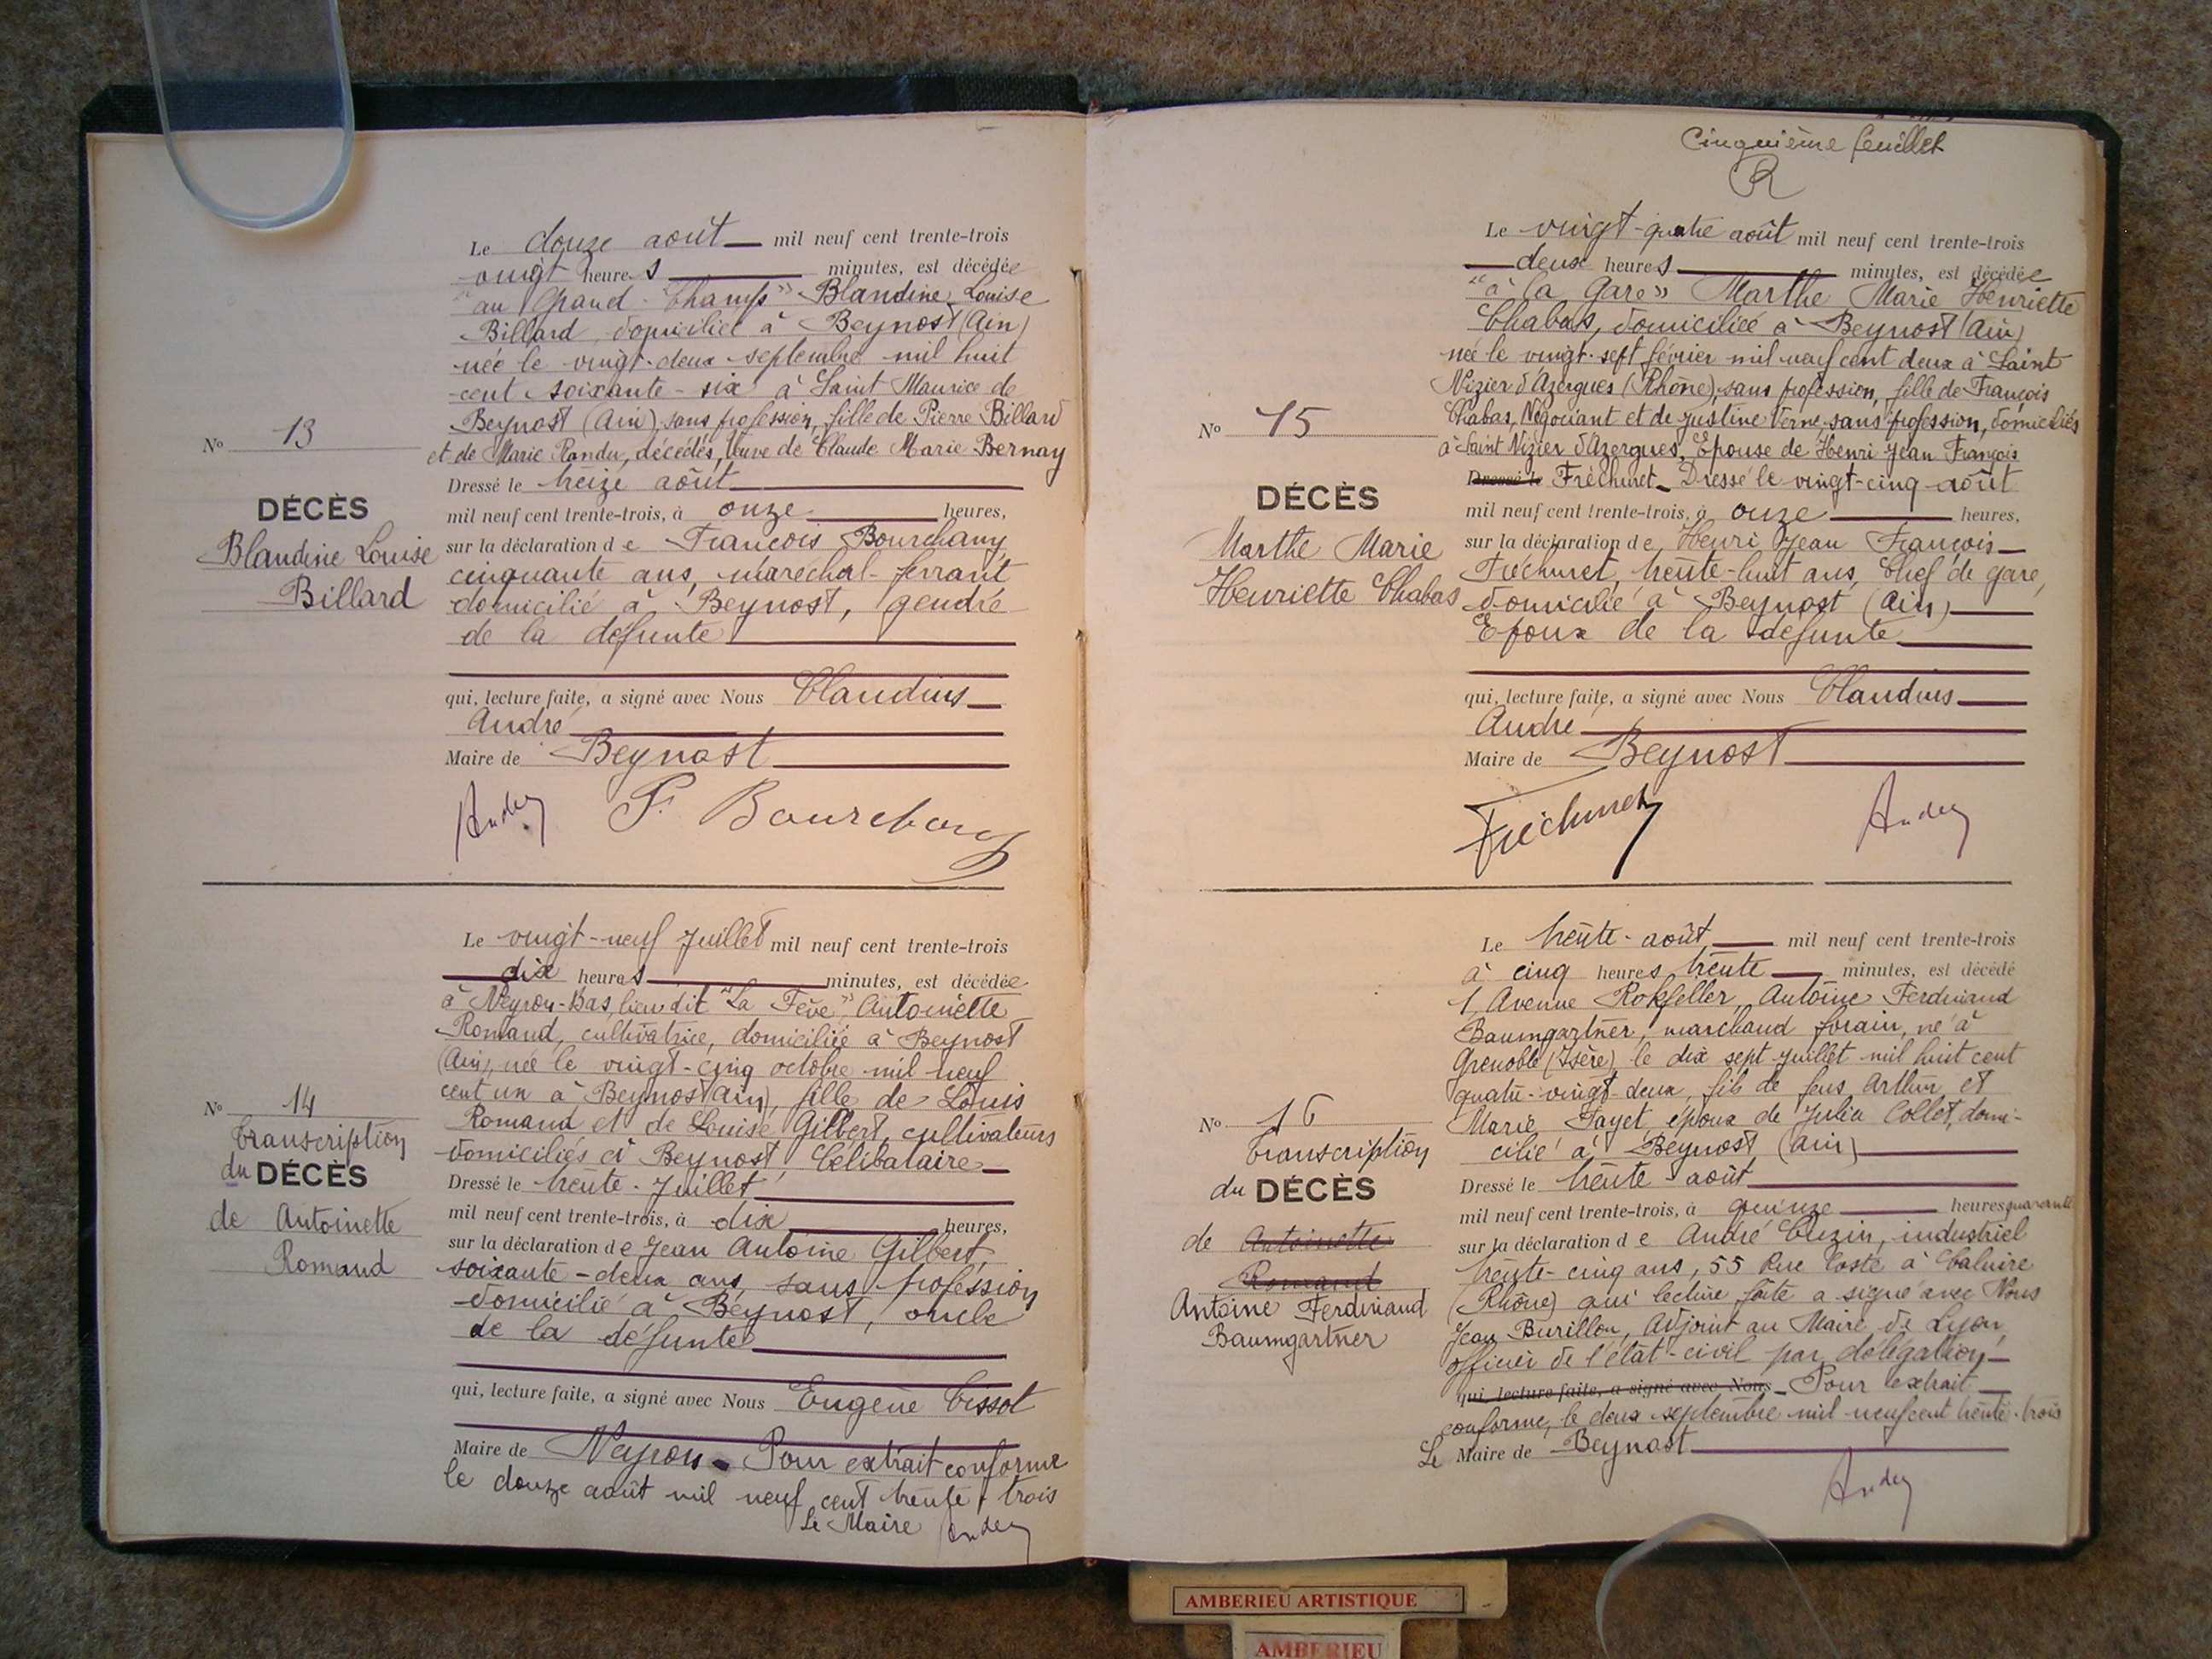 Le douze août mil neuf cent trente-trois
vingt heures minutes, est décédée
"au Grand-Champs" Blandine Louise
Billard, domiciliée à Beynost (Ain)
née le vingt-deux septembre mil huit
cent soixante-six à Saint Maurice de
Beynost (Ain), sans profession, fille de Pierre Billard
et de Marie Randu, décédés, Veuve de Claude Marie Bernay
N° 13
DÉCÈS
Blandine Louise
Billard
Dressé le treize août
mil neuf cent trente-trois, à onze heures,
sur la déclaration de François Bourchany
cinquante ans, maréchal-ferrant
domicilié à Beynost, gendre
de la défunte
qui, lecture faite, a signé avec Nous Claudius
André
Maire de Beynost
André F. Bourchany
Le vingt-neuf Juillet mil neuf cent trente-trois
dix heures minutes, est décédée
à Neyron-Bas, lieu dit "La Fève", Antoinette
Romand, cultivatrice, domiciliée à Beynost
(Ain), née le vingt-cinq octobre mil neuf
cent un à Beynost (Ain), fille de Louis
Romand et de Louise Gilbert, cultivateurs
domiciliés à Beynost, Célibataire
N° 14
Transcription
du DÉCÈS
de Antoinette
Romand
Dressé le trente-Juillet
mil neuf cent trente-trois, à dix heures,
sur la déclaration de Jean Antoine Gilbert,
soixante-deux ans, sans profession
domicilié à Beynost, oncle
de la défunte
qui, lecture faite, a signé avec Nous Eugène Cissot
Maire de Neyron - Pour extrait conforme
le douze août mil neuf cent trente-trois
Le Maire André
Cinquième feuillet
R
Le vingt-quatre août mil neuf cent trente-trois
deux heures minutes, est décédée
"à la Gare" Marthe Marie Henriette
Chabas, domiciliée à Beynost (Ain)
née le vingt-sept février mil neuf cent deux à Saint
Nizier d'Azergues (Rhône), sans profession, fille de François
Chabas, Négociant et de Justine Verne, sans profession, domiciliés
à Saint Nizier d'Azergues, Epouse de Henri Jean François
N° 15
DÉCÈS
Marthe Marie
Henriette Chabas
Dressé le Fréchuret - Dressé le vingt-cinq août
mil neuf cent trente-trois, à onze heures,
sur la déclaration de Henri Jean François
Fréchuret, trente-huit ans, Chef de gare,
domicilié à Beynost (Ain)
Epoux de la défunte
qui, lecture faite, a signé avec Nous Claudius
André
Maire de Beynost
Fréchuret André
Le trente-août mil neuf cent trente-trois
à cinq heures trente minutes, est décédé
1, Avenue Rokfeller, Antoine Ferdinand
Baumgartner, marchand forain, né à
Grenoble (Isère) le dix sept juillet mil huit cent
quatre-vingt-deux, fils de feus Arthur et
Marie Fayet, époux de Julie Collet, domi-
cilié à Beynost (Ain)
N° 16
Transcription
du DÉCÈS
de Antoinette
Romand
Antoine Ferdinand
Baumgartner
Dressé le trente août
mil neuf cent trente-trois, à quinze heures quarante
sur la déclaration de André Cuzin, industriel
trente-cinq ans, 55 Rue Coste à Caluire
(Rhône) qui lecture faite a signé avec Nous
Jean Burillon, Adjoint au Maire de Lyon,
officier de l'état-civil par délégation
qui, lecture faite, a signé avec Nous - Pour extrait
conforme, le deux septembre mil-neuf cent trente-trois
Le Maire de Beynost
André
AMBERIEU ARTISTIQUE
AMBERIEU